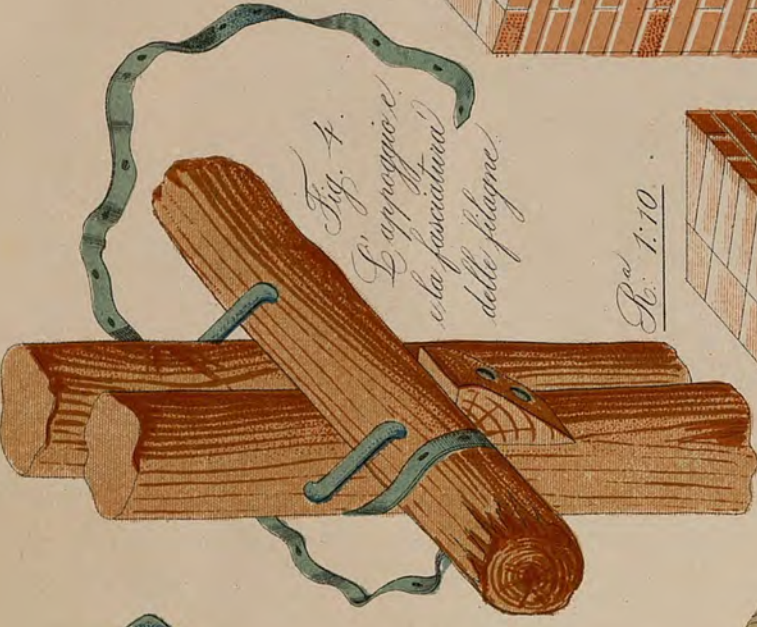 Fig. 4.
L'appoggio e
e la fasciatura
delle filagne
R.ª 1:10.